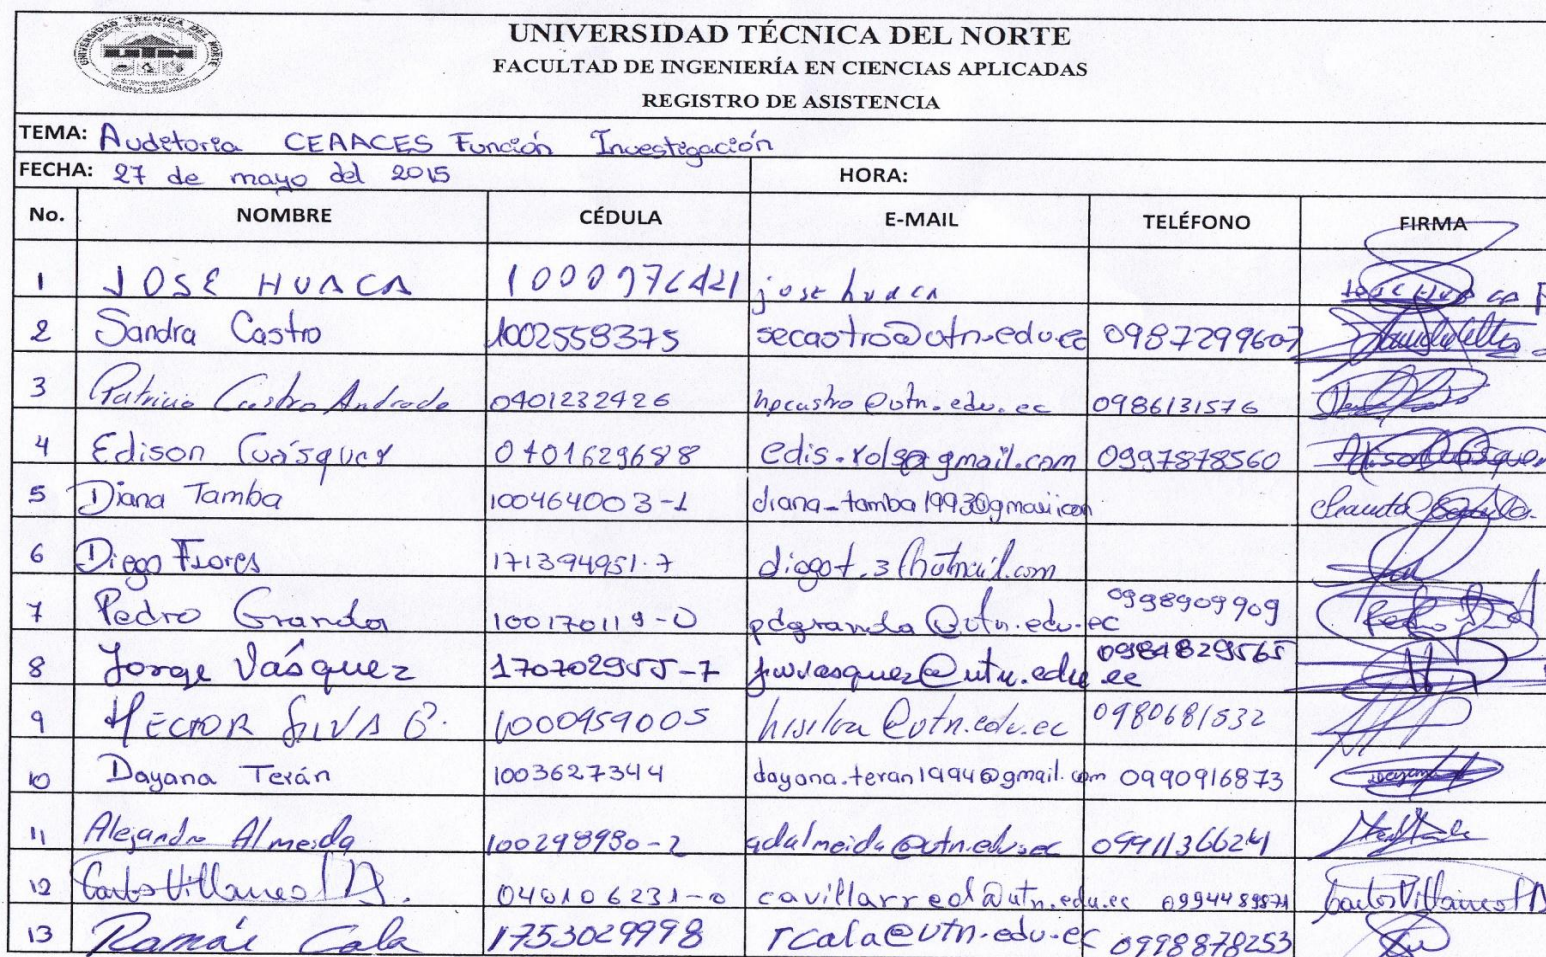 UNIVERSIDAD TÉCNICA DEL NORTE
FACULTAD DE INGENIERÍA EN CIENCIAS APLICADAS
REGISTRO DE ASISTENCIA
TEMA: Auditoria CEAACES Función Investigación
FECHA: 27 de mayo del 2015 HORA:
No. NOMBRE CÉDULA E-MAIL TELÉFONO FIRMA
1 JOSE HUACA jose huaca
2 Sandra Castro 1002558375 secastro@utn.edu.ec 0987299607
3 Patricio Castro Andrade 0401232426 hpcastro@utn.edu.ec 0986131576
4 Edison Cuásquer 0401629688 0997878560
5 Diana Tamba 100464003-1
6 Diego Flores 171394951-7
7 Pedro Granda 100170119-0 pdgranda@utn.edu.ec 0998909909
8 Jorge Vásquez 170702955-7 09841829565
9 HECTOR SILVA 1000959005 0980681532
10 Dayana Terán 1003627344 dayana.teran1994@gmail.com 0990916873
11 Alejandra Almeida 100298980-2
12 Carlos Villarreal 040106231-0 cavillarreal@utn.edu.ec
13 Cala 1753029998 rcala@utn.edu.ec 0998878253